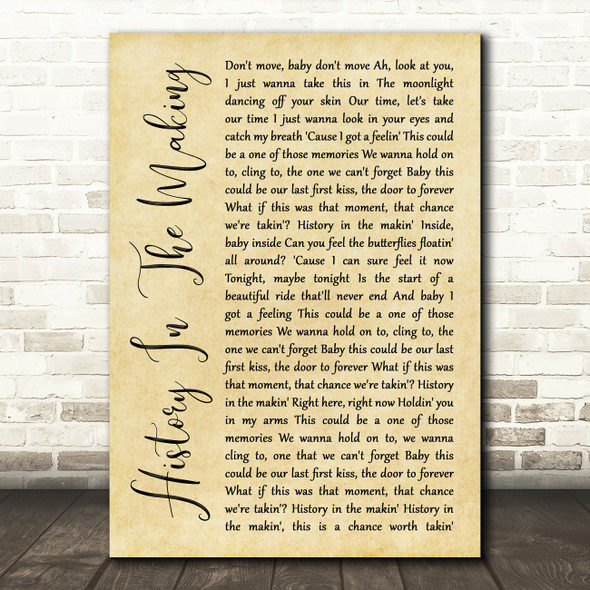 History In The Making
Don't move, baby don't move Ah, look at you,
I just wanna take this in The moonlight
dancing off your skin Our time, let's take
our time I just wanna look in your eyes and
catch my breath 'Cause I got a feelin' This could
be a one of those memories We wanna hold on
to, cling to, the one we can't forget Baby this
could be our last first kiss, the door to forever
What if this was that moment, that chance
we're takin'? History in the makin' Inside,
baby inside Can you feel the butterflies floatin'
all around? 'Cause I can sure feel it now
Tonight, maybe tonight Is the start of a
beautiful ride that'll never end And baby I
got a feeling This could be a one of those
memories We wanna hold on to, cling to, the
one we can't forget Baby this could be our last
first kiss, the door to forever What if this was
that moment, that chance we're takin'? History
in the makin' Right here, right now Holdin' you
in my arms This could be a one of those
memories We wanna hold on to, we wanna
cling to, one that we can't forget Baby this
could be our last first kiss, the door to forever
What if this was that moment, that chance
we're takin'? History in the makin' History
in the makin', this is a chance worth takin'